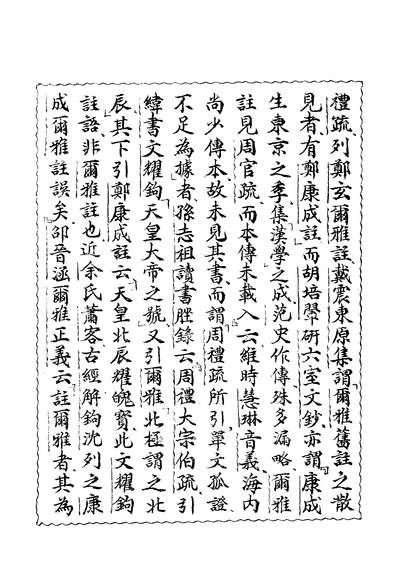 禮疏列鄭玄爾雅註戴震東原集謂爾雅舊註之散
見者有鄭康成註而胡培翬研六室文鈔亦謂康成
生東京之季集漢學之成范史作傳殊多漏略爾雅
註見周官疏而本傳未載入云維時慧琳音義海內
尚少傳本故未見其書而謂周禮疏所引單文孤證
不足為據者孫志祖讀書脞錄云周禮大宗伯疏引
緯書文耀鉤天皇大帝之號又引爾雅北極謂之北
辰其下引鄭康成註云天皇北辰耀魄寶此文耀鉤
註語非爾雅註也近余氏蕭客古經解鉤沈列之康
成爾雅註誤矣邵晉涵爾雅正義云註爾雅者其為